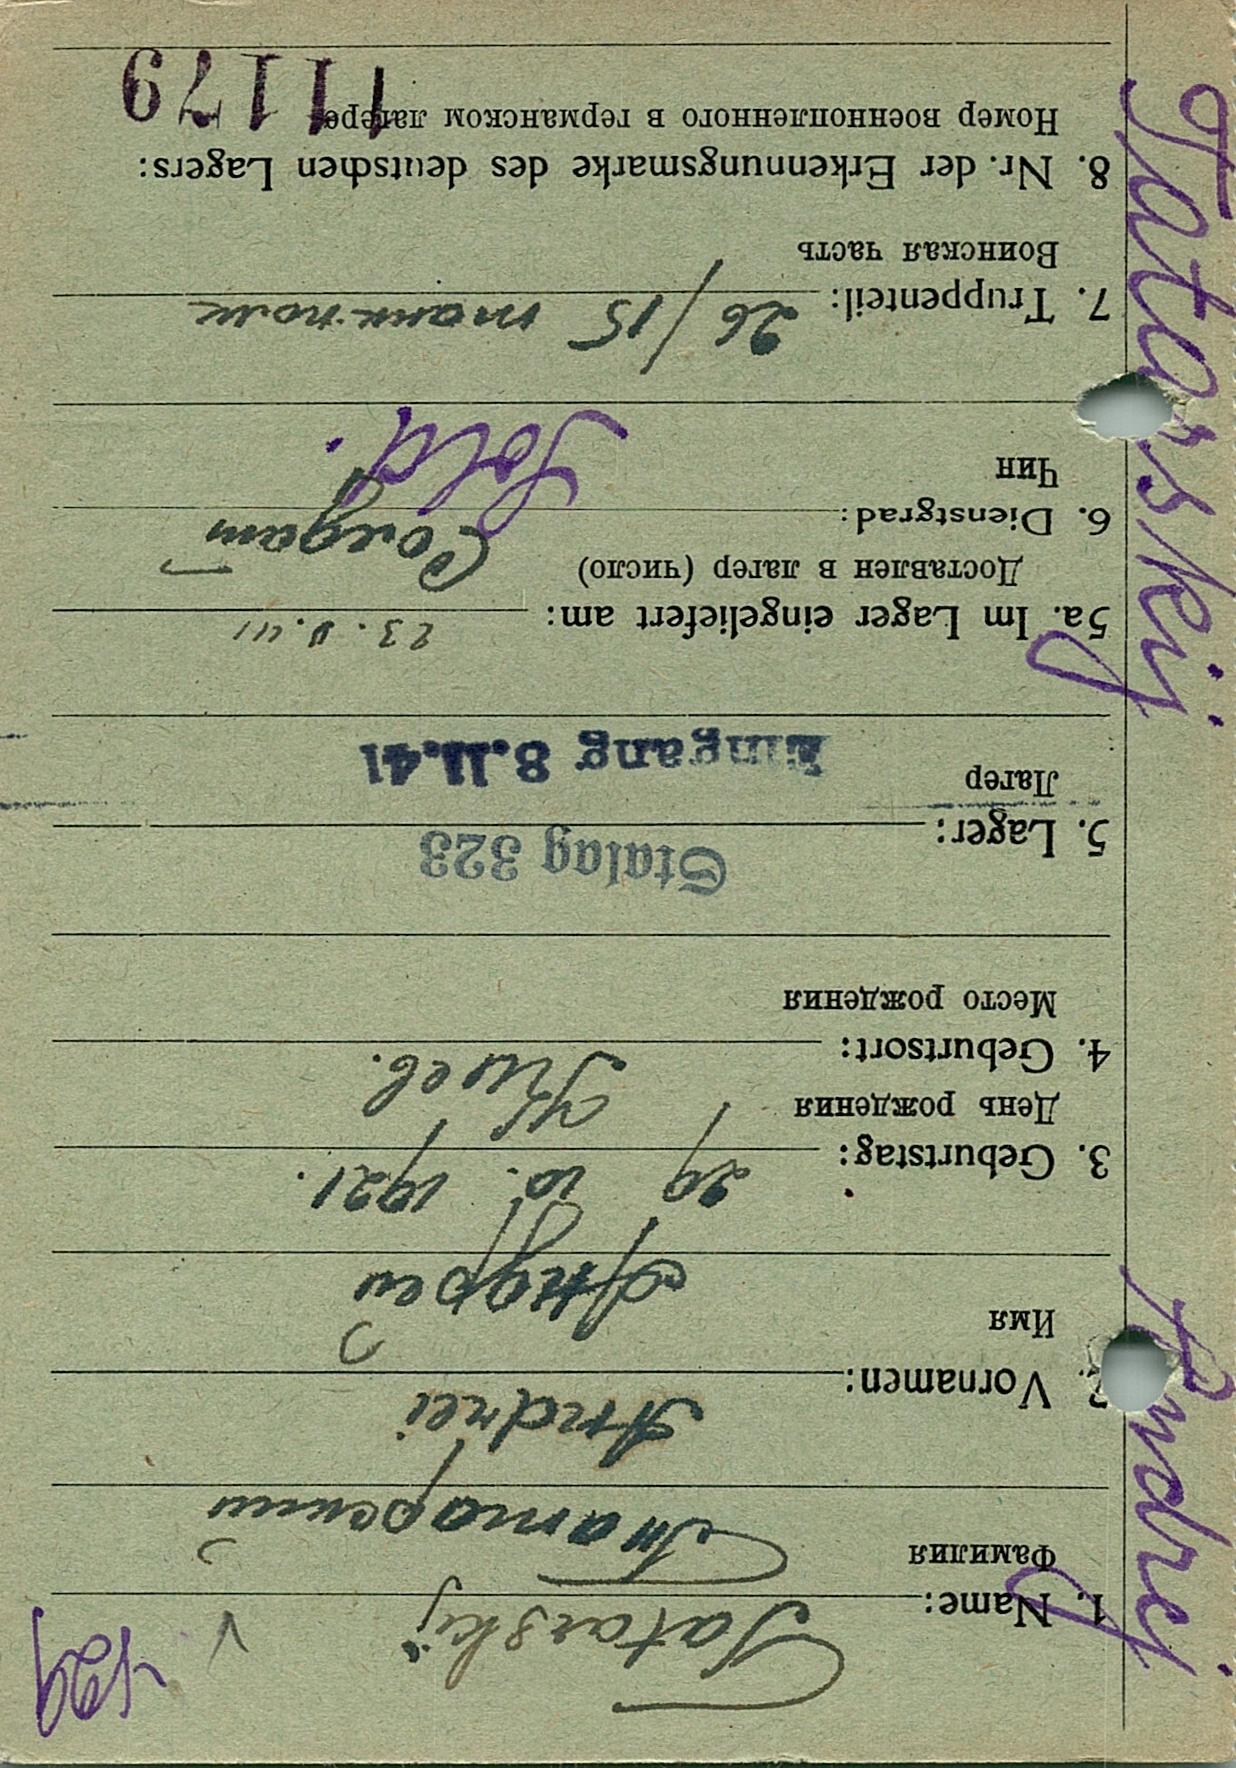 129
Tatarskij
1. Name:
Фамилия
Татарский
Andrei
2. Vornamen:
Имя
Андрей
3. Geburtstag: 29 10. 1921.
День рождения
4. Geburtsort: Киев.
Место рождения
Stalag 323
5. Lager:
Лагер
Eingang 8.11.41
5a. Im Lager eingeliefert am: 23.
Доставлен в лагер (число)
6. Dienstgrad: Солдат
Чин
Sold.
7. Truppenteil: 26/15 танк. полк
Воинская часть
8. Nr. der Erkennungsmarke des deutschen Lagers:
Номер военнопленного в германском лагере
11179
Andrej Tatarskij